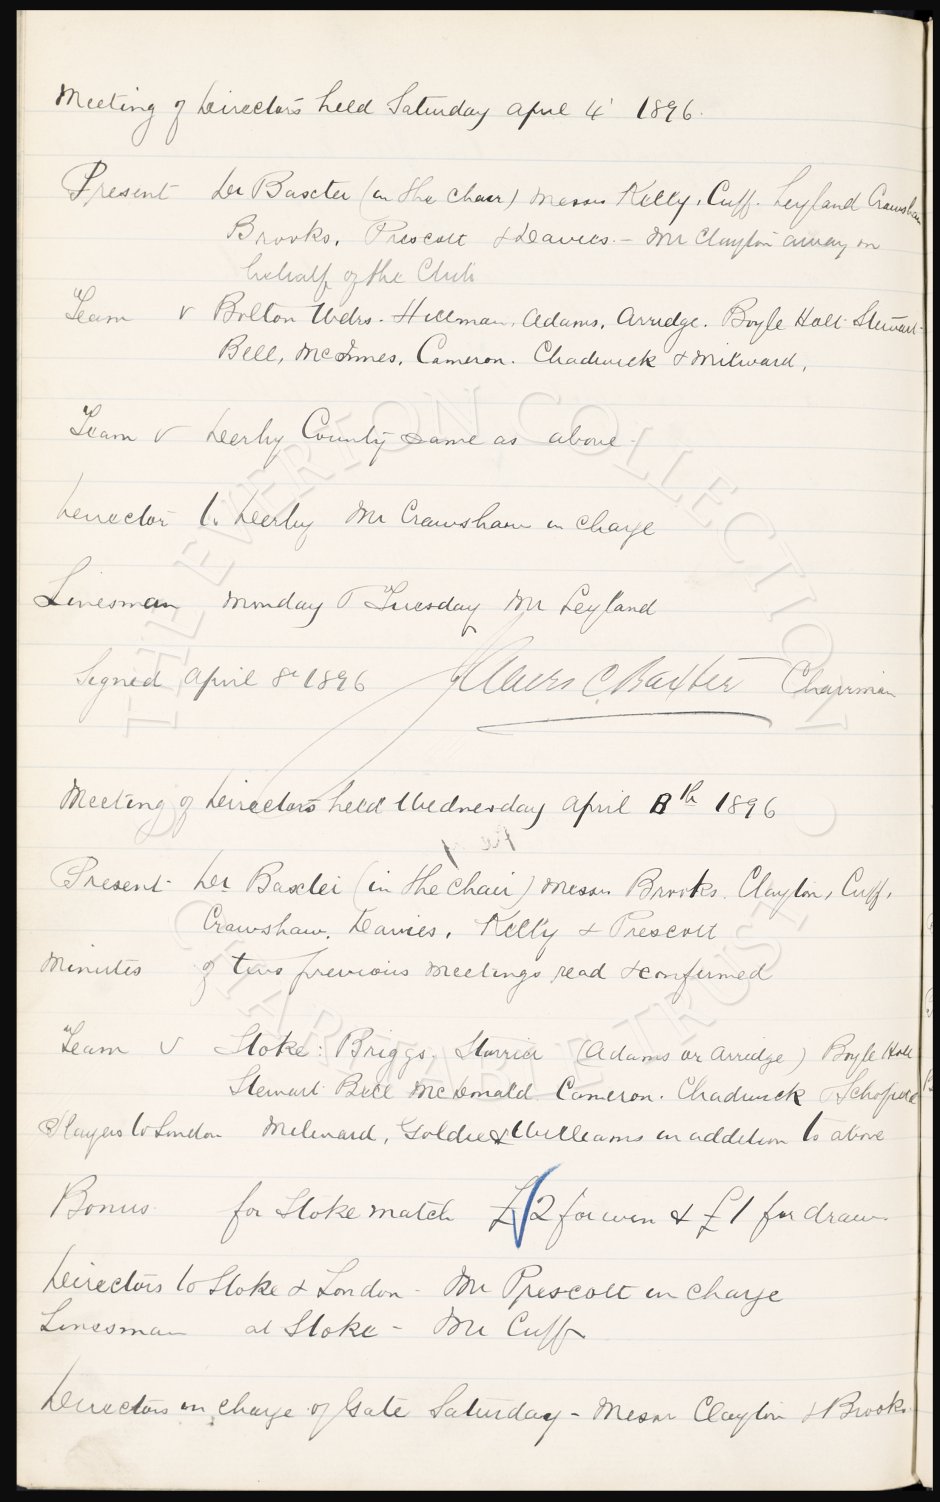 Meeting of Directors held Saturday April 4' 1896.
Present Dr Baxter (in the chair) Messrs Kelly, Cuff. Leyland Crawshaw
Brooks, Prescott & Davies. - Mr Clayton away on
behalf of the Club
Team v Bolton Wdrs. Hillman, Adams, Arridge. Boyle Holt Stewart
Bell, McInnes, Cameron. Chadwick & Milward,
Team v Derby County same as above -
Director to Derby Mr Crawshaw in charge
Linesman Monday & Tuesday Mr Leyland
Signed April 8th 1896 James C. Baxter Chairman
Meeting of Directors held Wednesday April 8th 1896
Present - Dr Baxter (in the chair) Messrs Brooks. Clayton, Cuff,
Crawshaw, Davies, Kelly & Prescott
Minutes of two previous meetings read & confirmed
Team v Stoke: Briggs, Storrier (Adams or Arridge) Boyle Holt
Stewart Bell McDonald Cameron. Chadwick & Schofield
Players to London Milward, Goldie & Williams in addition to above
Bonus for Stoke match £2 for win & £1 for draw.
Directors to Stoke & London - Mr Prescott in charge
Linesman at Stoke - Mr Cuff
Directors in charge of Gate Saturday - Messrs Clayton & Brooks
THE EVERTON COLLECTION
CHARITABLE TRUST